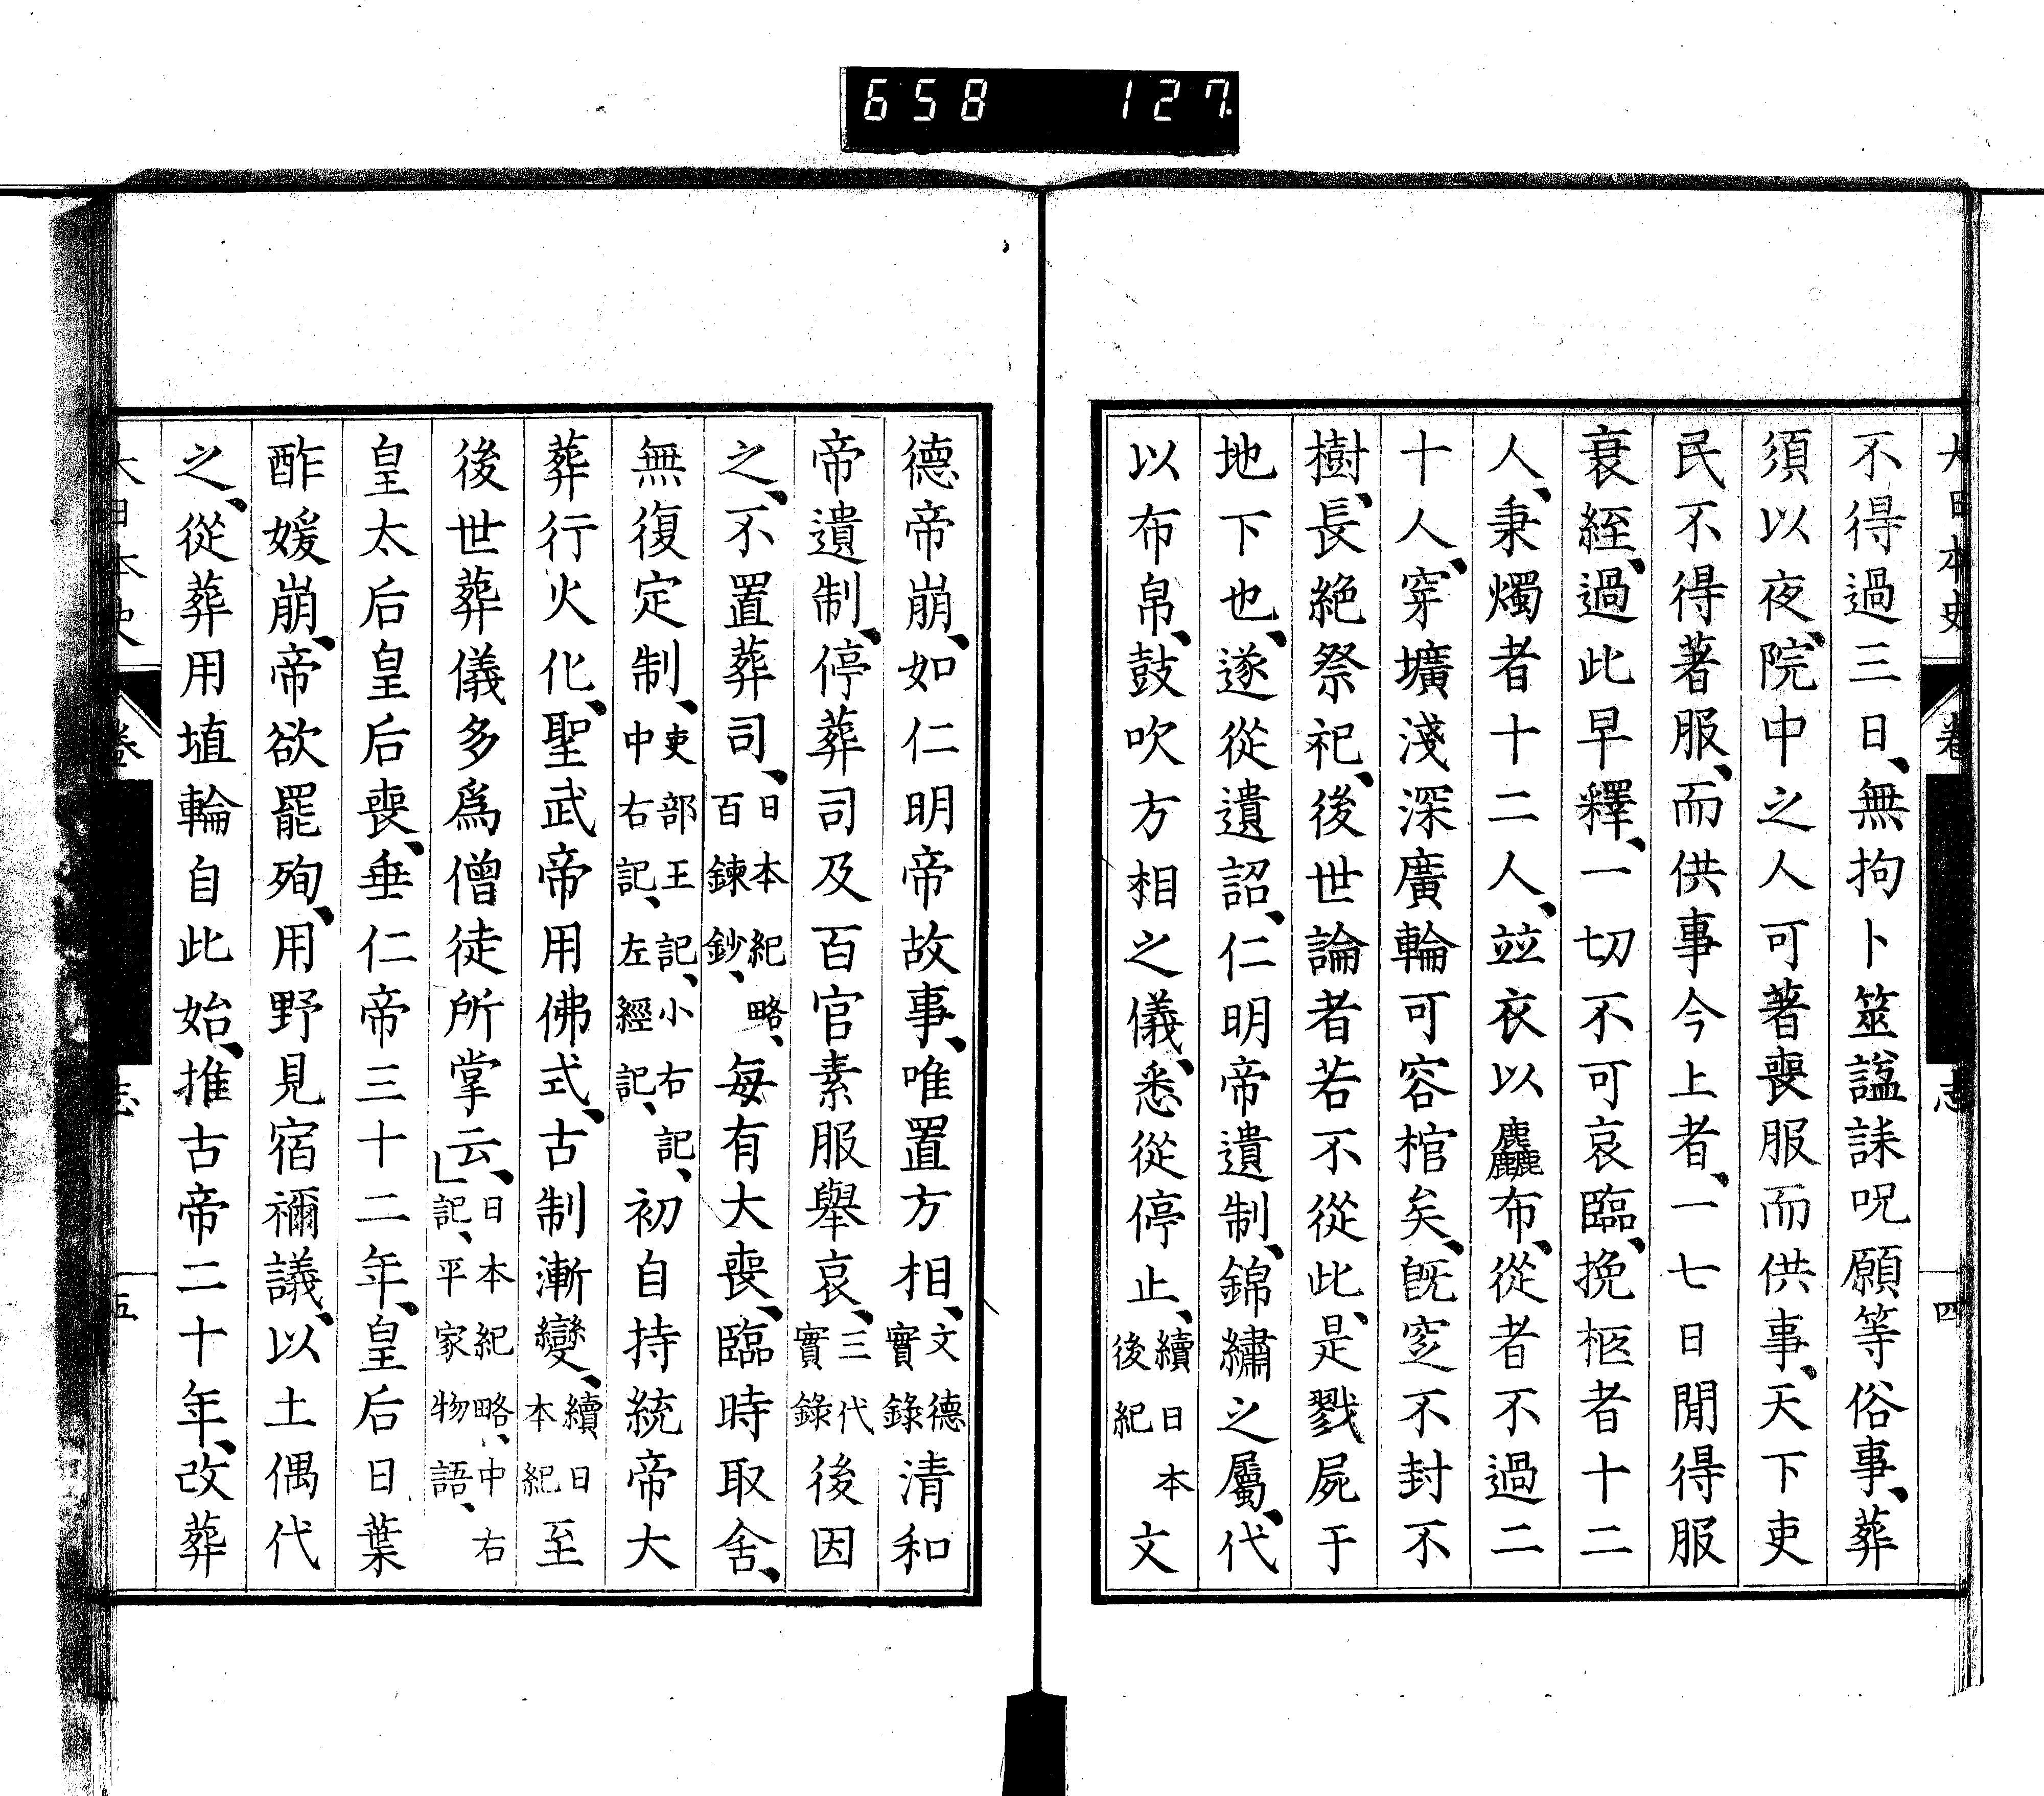 658 127
大日本史 卷 志 四
不得過三日、無拘卜筮謚誄呪願等俗事、葬
須以夜、院中之人可著喪服而供事、天下吏
民不得著服、而供事今上者、一七日閒得服
衰絰、過此早釋、一切不可哀臨、挽柩者十二
人、秉燭者十二人、竝衣以麤布、從者不過二
十人、穿壙淺深廣輪可容棺矣、旣窆不封不
樹、長絶祭祀、後世論者若不從此、是戮屍于
地下也、遂從遺詔、仁明帝遺制、錦繡之屬、代
以布帛、鼓吹方相之儀、悉從停止、續日本後紀 文
德帝崩、如仁明帝故事、唯置方相、文德實錄 清和
帝遺制、停葬司及百官素服擧哀、三代實錄 後因
之、不置葬司、日本紀略、百鍊鈔、 每有大喪、臨時取舍、
無復定制、吏部王記、小右記、中右記、左經記、 初自持統帝大
葬行火化、聖武帝用佛式、古制漸變、續日本紀 至
後世葬儀多爲僧徒所掌云、日本紀略、中右記、平家物語、
皇太后皇后喪、垂仁帝三十二年、皇后日葉
酢媛崩、帝欲罷殉、用野見宿禰議、以土偶代
之、從葬用埴輪自此始、推古帝二十年、改葬
大日本史 卷 志 五